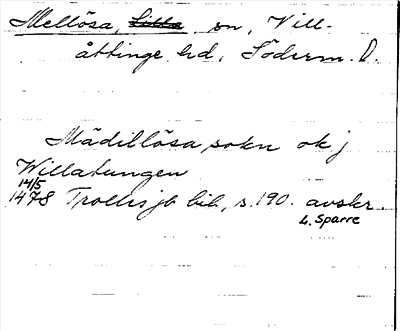 Mellösa, Lilla sn, Vill-
åttinge hd, Söderm. D.
Mädillösa sokn ok j
Willatungen
14/5
1478 Trollesjb bib, s. 190. avskr
L. Sparre